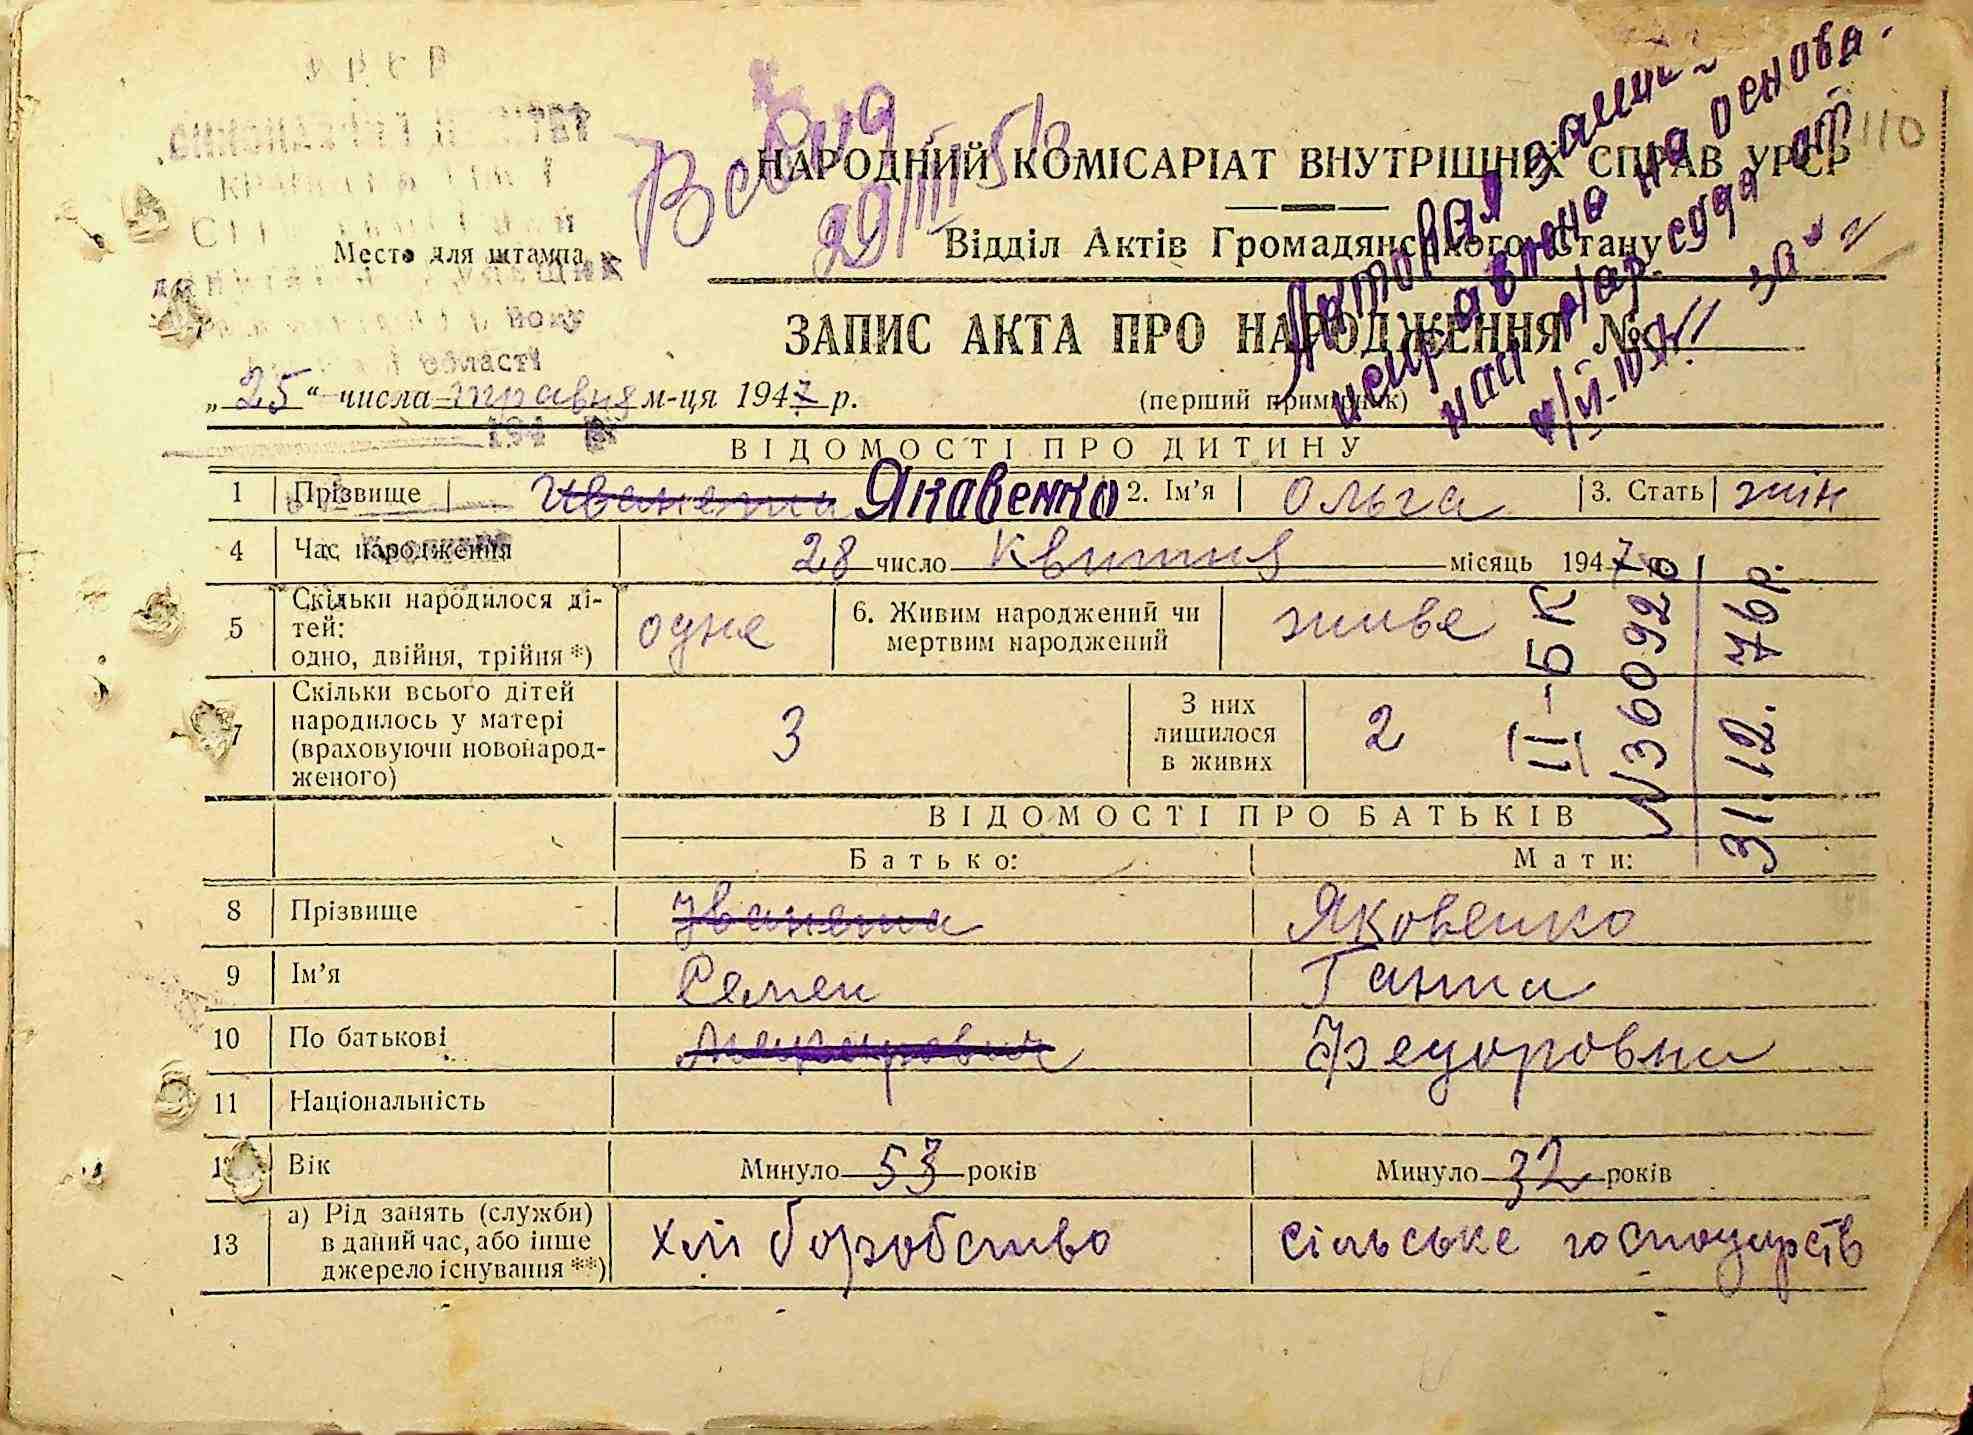 110
НАРОДНИЙ КОМІСАРІАТ ВНУТРІШНІХ СПРАВ УРСР
Відділ Актів Громадянського Стану
Место для штампа
області
29/III
Актовая запись
исправлена на основа-
нии нар. суда от
ЗАПИС АКТА ПРО НАРОДЖЕННЯ №
(перший примірник)
„25“ числа травня м-ця 1947 р.
194
ВІДОМОСТІ ПРО ДИТИНУ
1 Прізвище Яковенко 2. Ім’я Ольга 3. Стать жін
4 Час народження 28 число Квитня місяць 1947 р.
5 Скільки народилося ді-
тей:
одно, двійня, трійня *) одне 6. Живим народжений чи
мертвим народжений живе
7 Скільки всього дітей
народилось у матері
(враховуючи новонарод-
женого) 3 З них
лишилося
в живих 2
II-БК
№360920
31.12.76р.
ВІДОМОСТІ ПРО БАТЬКІВ
Батько: Мати:
8 Прізвище Іванена Яковенко
9 Ім’я Семен Ганна
10 По батькові Федоровна
11 Національність
12 Вік Минуло 53 років Минуло 32 років
13 а) Рід занять (служби)
в даний час, або інше
джерело існування **) хліборобство сільське господарств